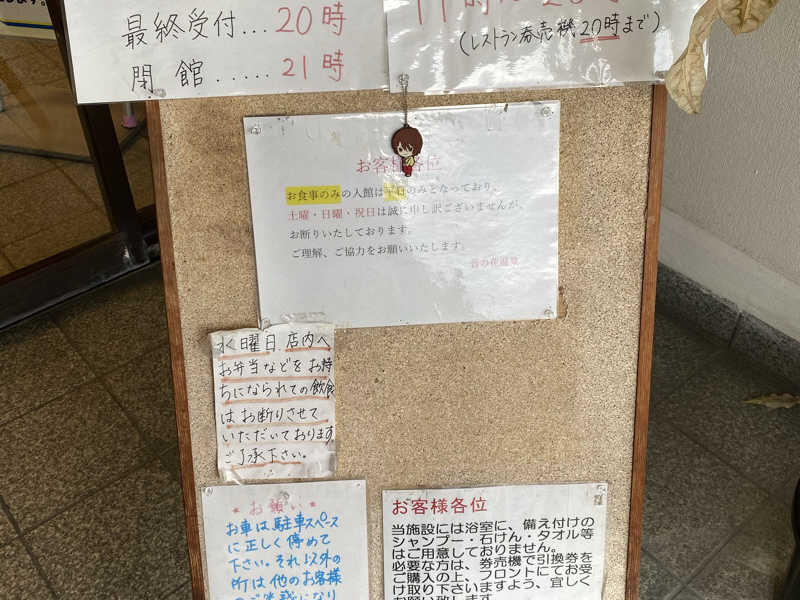 最終受付...20時
閉館......21時
(レストラン券売機20時まで)
お客様各位
お食事のみの入館は平日のみとなっており、
土曜・日曜・祝日は誠に申し訳ございませんが、
お断りいたしております。
ご理解、ご協力をお願いいたします。
水曜日 店内へ
お弁当などをお持
ちになられての飲食
はお断りさせて
いただいております
ご了承下さい。
★お願い★
お車は駐車スペース
に正しく停めて
下さい。それ以外の
所は他のお客様
お客様各位
当施設には浴室に、備え付けの
シャンプー・石けん・タオル等
はご用意しておりません。
必要な方は、券売機で引換券を
ご購入の上、フロントにてお受
け取り下さいますよう、宜しく
お願い致します。